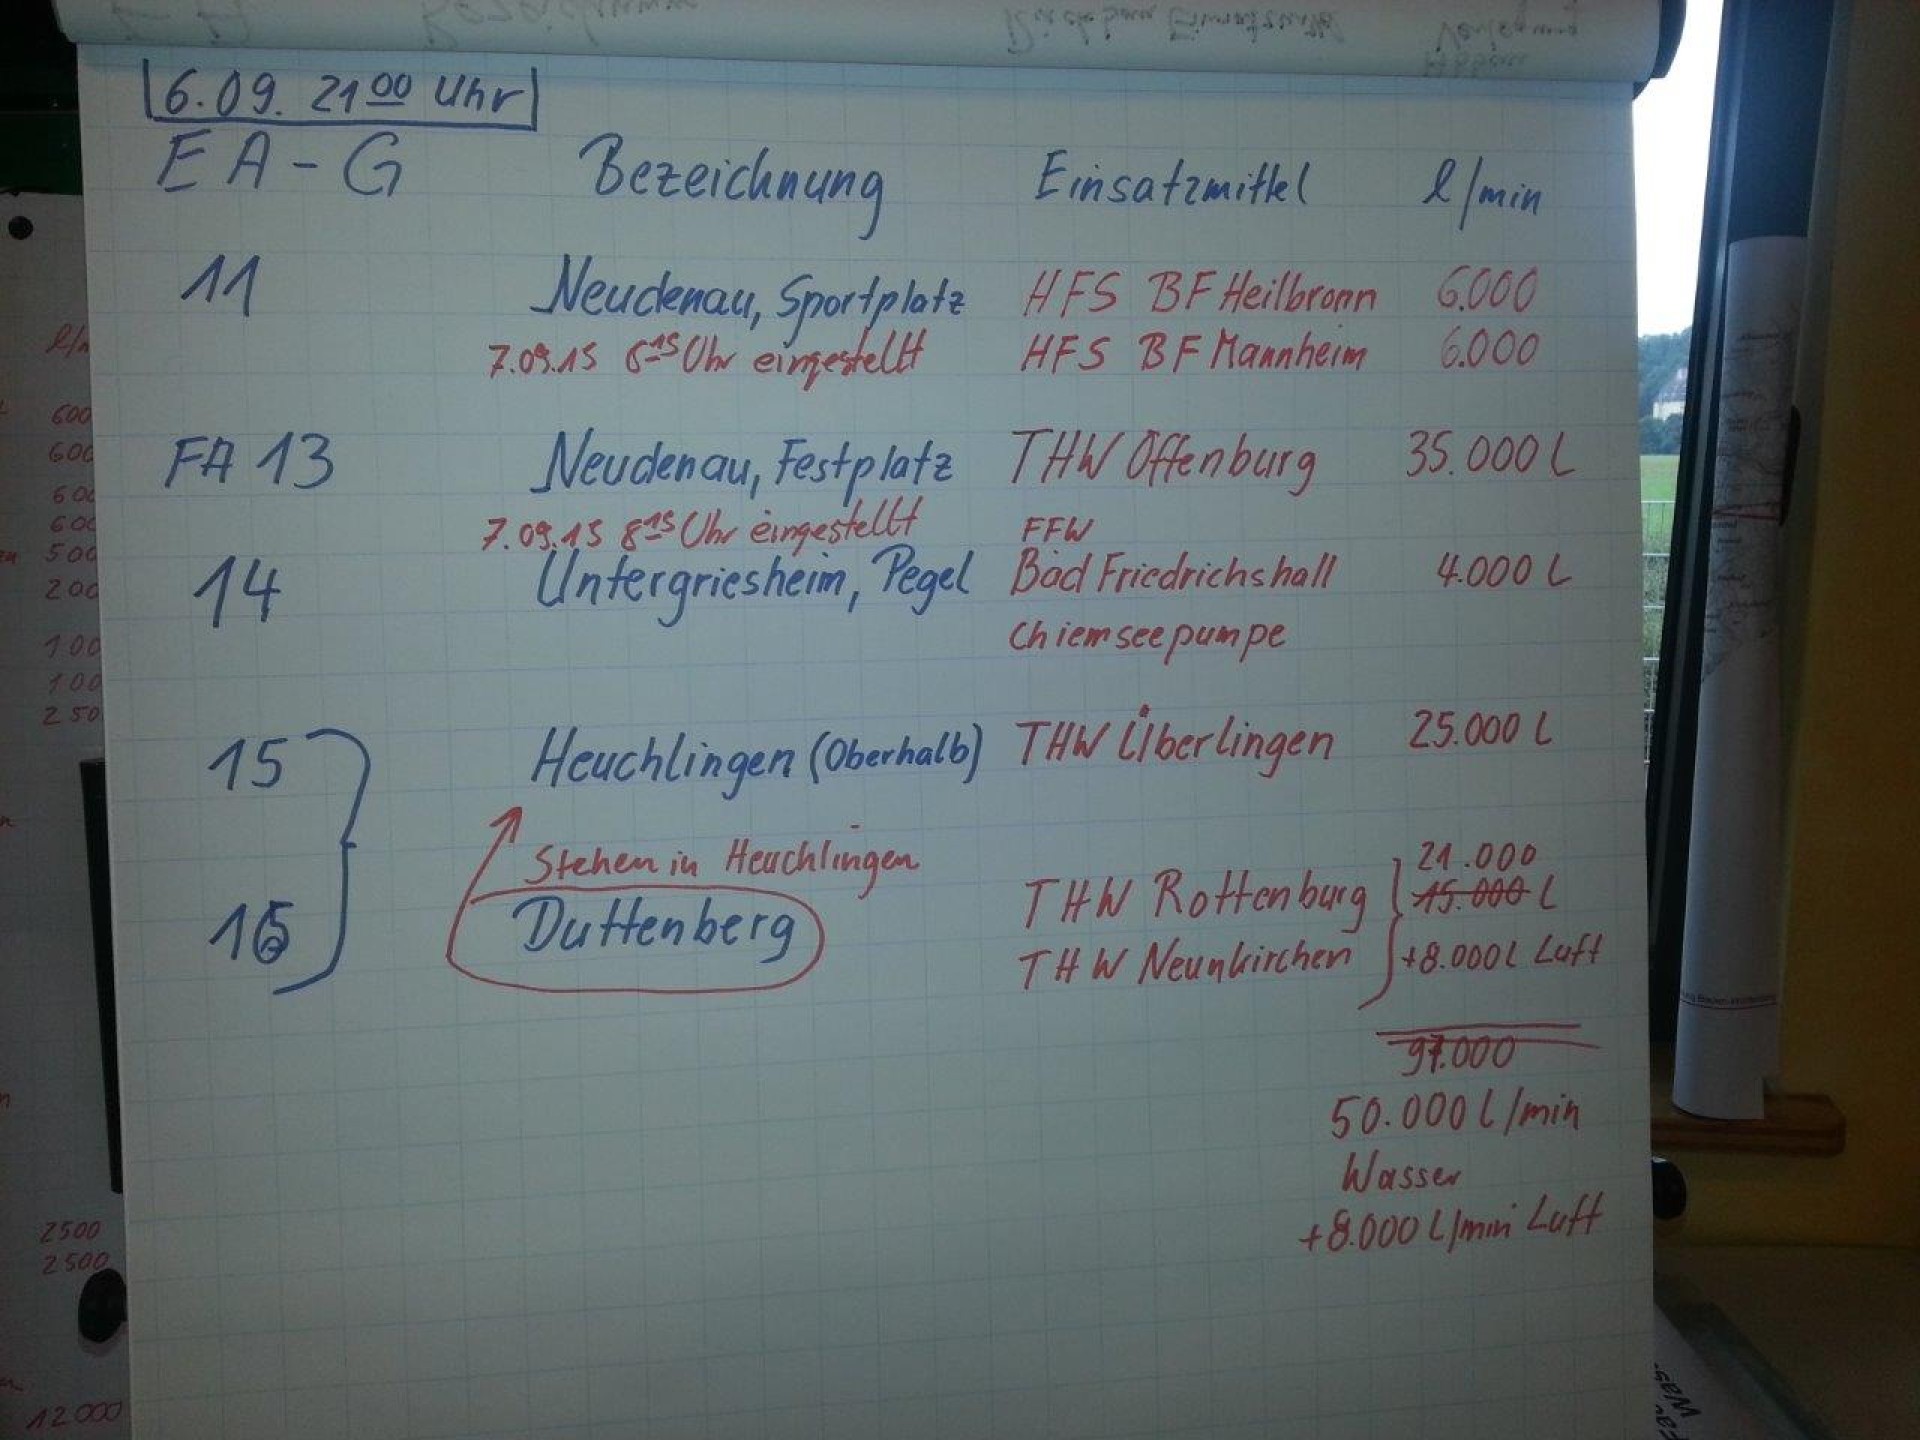 6.09. 21 00 Uhr
EA-G Bezeichnung Einsatzmittel l/min
11 Neudenau, Sportplatz HFS BF Heilbronn 6.000
7.09.15 8 15 Uhr eingestellt HFS BF Mannheim 6.000
FA 13 Neudenau, Festplatz THW Offenburg 35.000 L
7.09.15 8 15 Uhr eingestellt FFW
14 Untergriesheim, Pegel Bad Friedrichshall 4.000 L
Chiemseepumpe
15 Heuchlingen (Oberhalb) THW Überlingen 25.000 L
Stehen in Heuchlingen 21.000
16 Duttenberg THW Rottenburg 15.000 L
THW Neunkirchen +8.000 L Luft
97.000
50.000 L/min
Wasser
+8.000 L/min Luft
600
600
600
600
500
200
100
100
250
2500
2500
12000